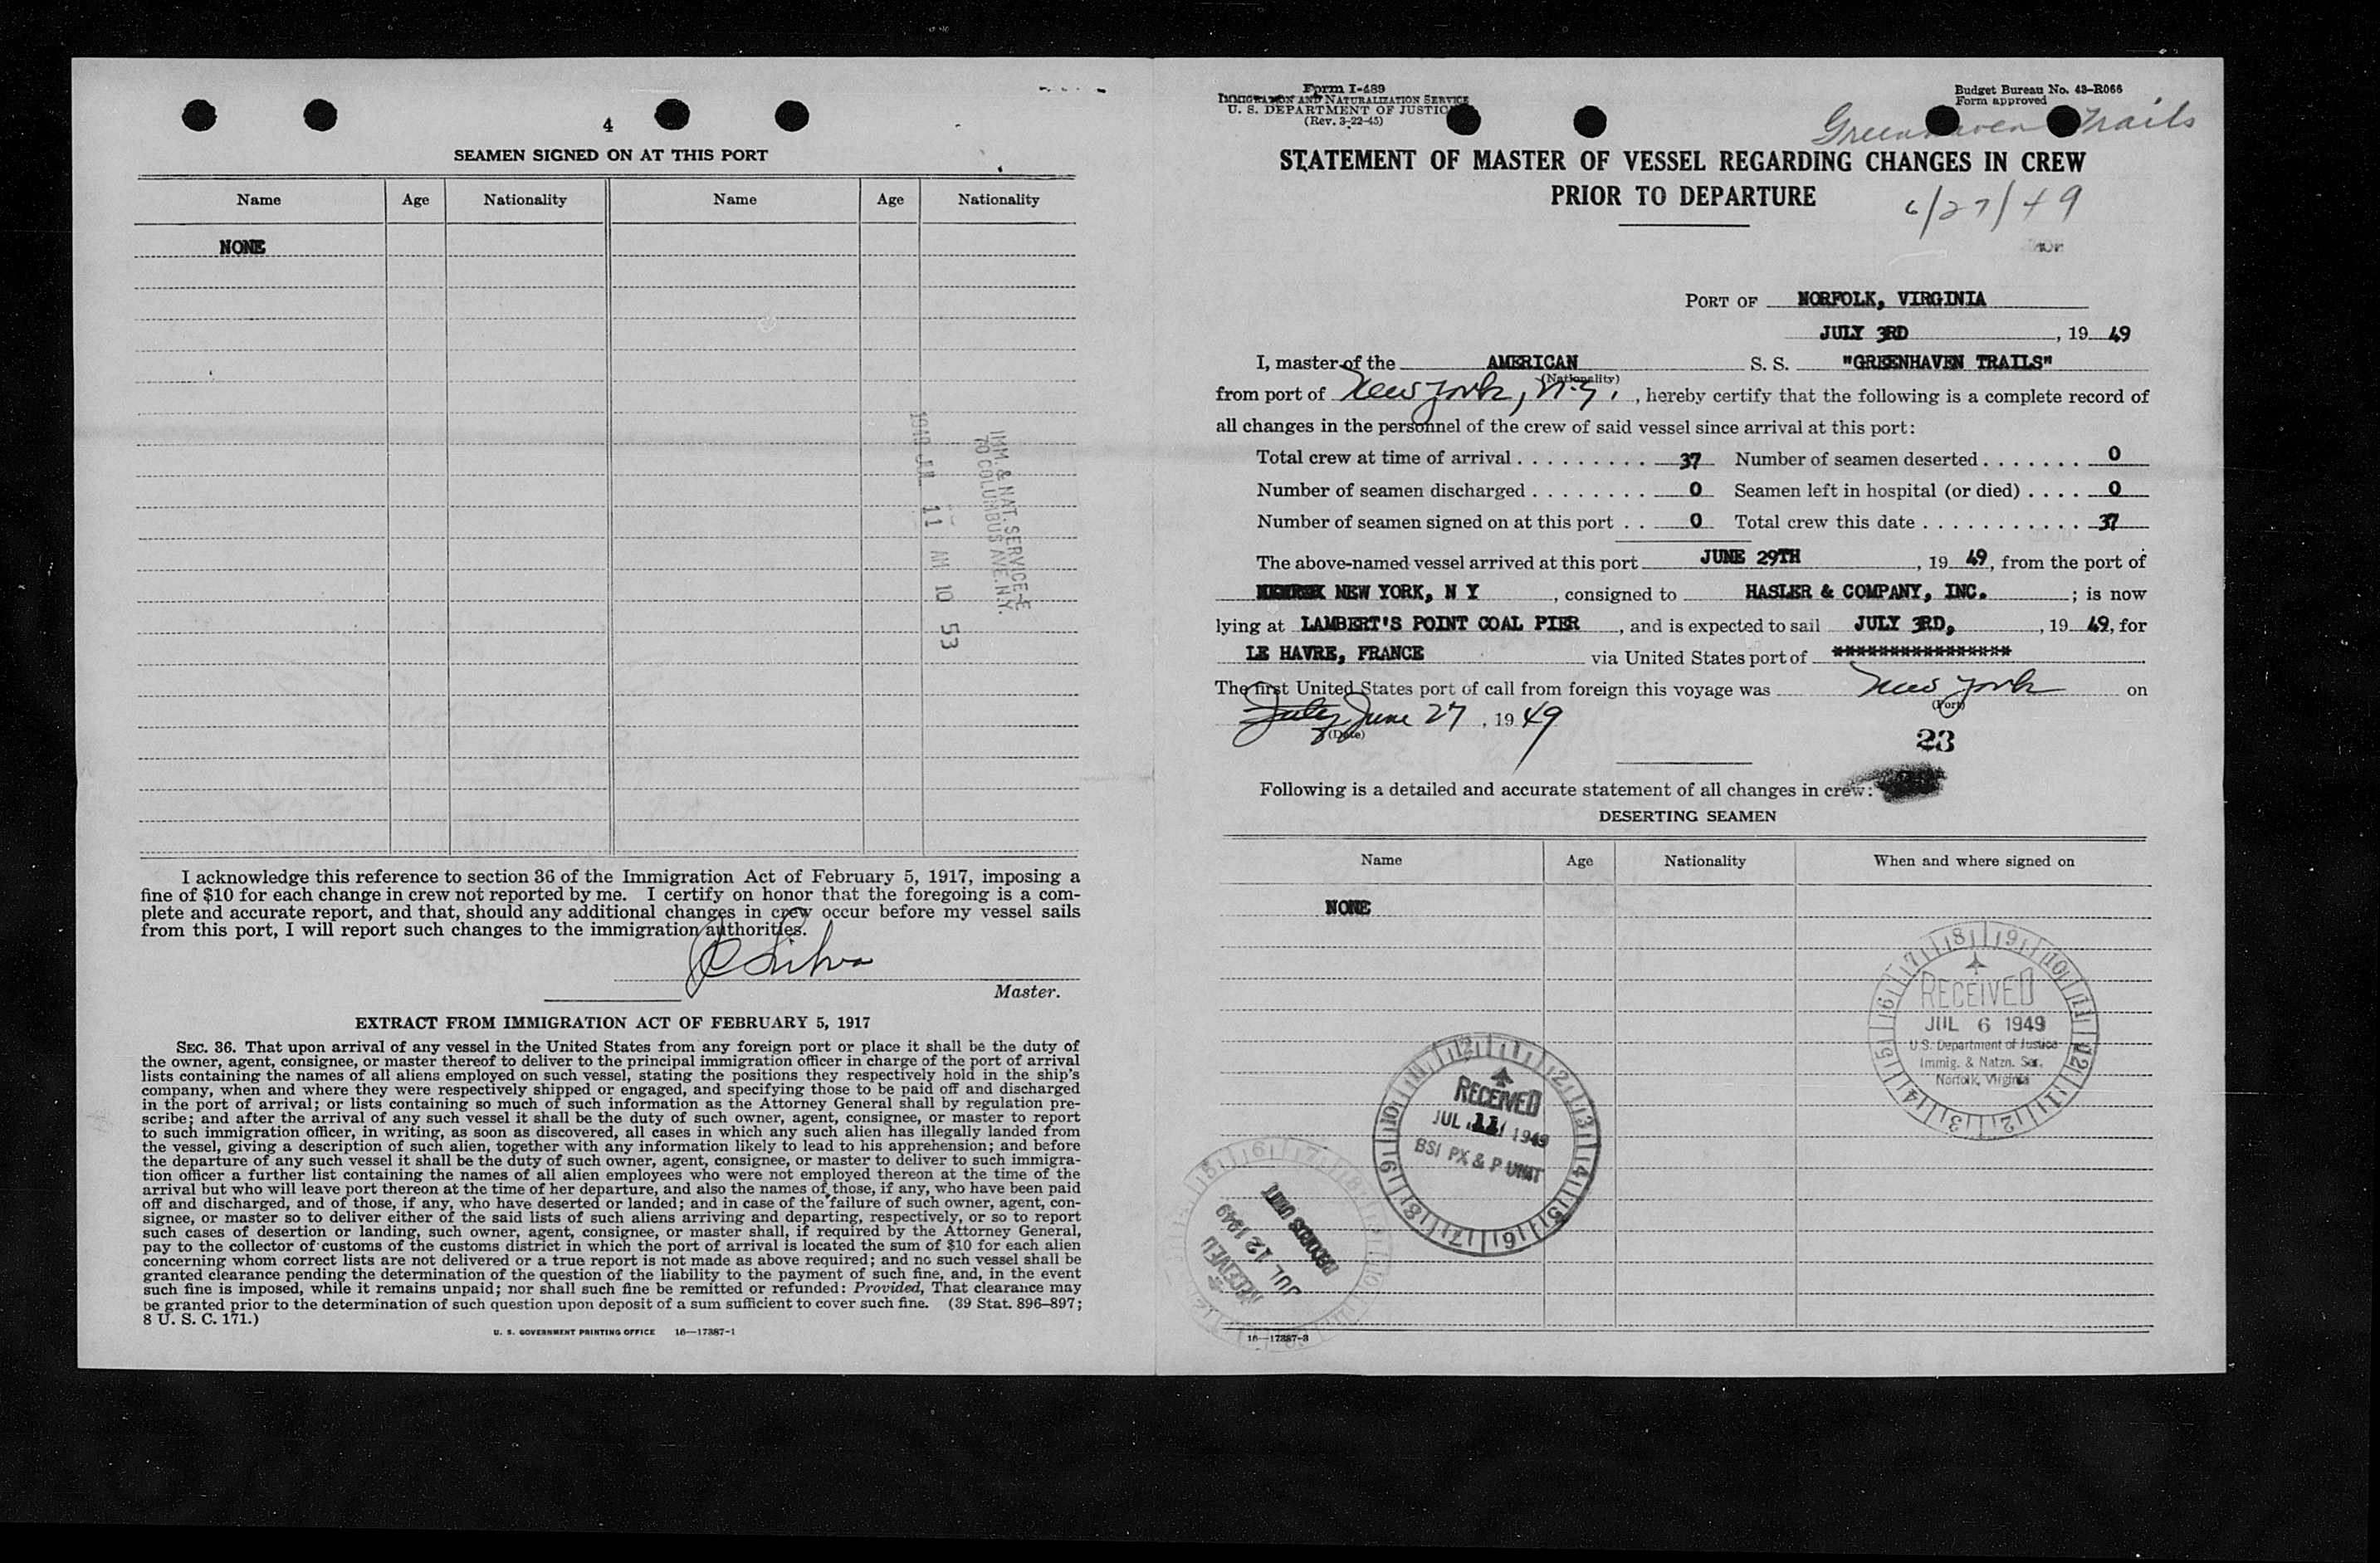 4
SEAMEN SIGNED ON AT THIS PORT
Name Age Nationality Name Age Nationality
NONE
IMM. & NAT. SERVICE
70 COLUMBUS AVE. N.Y.
1949 JUL 11 AM 10 53
I acknowledge this reference to section 36 of the Immigration Act of February 5, 1917, imposing a
fine of $10 for each change in crew not reported by me. I certify on honor that the foregoing is a com-
plete and accurate report, and that, should any additional changes in crew occur before my vessel sails
from this port, I will report such changes to the immigration authorities.
Silva
Master.
EXTRACT FROM IMMIGRATION ACT OF FEBRUARY 5, 1917
SEC. 36. That upon arrival of any vessel in the United States from any foreign port or place it shall be the duty of
the owner, agent, consignee, or master thereof to deliver to the principal immigration officer in charge of the port of arrival
lists containing the names of all aliens employed on such vessel, stating the positions they respectively hold in the ship's
company, when and where they were respectively shipped or engaged, and specifying those to be paid off and discharged
in the port of arrival; or lists containing so much of such information as the Attorney General shall by regulation pre-
scribe; and after the arrival of any such vessel it shall be the duty of such owner, agent, consignee, or master to report
to such immigration officer, in writing, as soon as discovered, all cases in which any such alien has illegally landed from
the vessel, giving a description of such alien, together with any information likely to lead to his apprehension; and before
the departure of any such vessel it shall be the duty of such owner, agent, consignee, or master to deliver to such immigra-
tion officer a further list containing the names of all alien employees who were not employed thereon at the time of the
arrival but who will leave port thereon at the time of her departure, and also the names of those, if any, who have been paid
off and discharged, and of those, if any, who have deserted or landed; and in case of the failure of such owner, agent, con-
signee, or master so to deliver either of the said lists of such aliens arriving and departing, respectively, or so to report
such cases of desertion or landing, such owner, agent, consignee, or master shall, if required by the Attorney General,
pay to the collector of customs of the customs district in which the port of arrival is located the sum of $10 for each alien
concerning whom correct lists are not delivered or a true report is not made as above required; and no such vessel shall be
granted clearance pending the determination of the question of the liability to the payment of such fine, and, in the event
such fine is imposed, while it remains unpaid; nor shall such fine be remitted or refunded: Provided, That clearance may
be granted prior to the determination of such question upon deposit of a sum sufficient to cover such fine. (39 Stat. 896-897;
8 U. S. C. 171.)
U. S. GOVERNMENT PRINTING OFFICE 16—17387-1
Form I-489
IMMIGRATION AND NATURALIZATION SERVICE
U. S. DEPARTMENT OF JUSTICE
(Rev. 3-22-45)
Budget Bureau No. 43-R066
Form approved
Greenhaven Trails
STATEMENT OF MASTER OF VESSEL REGARDING CHANGES IN CREW
PRIOR TO DEPARTURE
6/27/49
PORT OF NORFOLK, VIRGINIA
JULY 3RD, 19 49
I, master of the AMERICAN S. S. "GREENHAVEN TRAILS"
(Nationality)
from port of New York, N.Y., hereby certify that the following is a complete record of
all changes in the personnel of the crew of said vessel since arrival at this port:
Total crew at time of arrival . . . . . . . . . . 37 Number of seamen deserted . . . . . . . 0
Number of seamen discharged . . . . . . . . 0 Seamen left in hospital (or died) . . . . 0
Number of seamen signed on at this port . . 0 Total crew this date . . . . . . . . . . . . 37
The above-named vessel arrived at this port JUNE 29TH, 19 49, from the port of
NEW YORK, N Y, consigned to HASLER & COMPANY, INC. ; is now
lying at LAMBERT'S POINT COAL PIER, and is expected to sail JULY 3RD, , 19 49, for
LE HAVRE, FRANCE via United States port of ****************
The first United States port of call from foreign this voyage was New York on
(Port)
July June 27, 19 49
(Date)
23
Following is a detailed and accurate statement of all changes in crew:
DESERTING SEAMEN
Name Age Nationality When and where signed on
NONE
RECEIVED
JUL 6 1949
U.S. Department of Justice
Immig. & Natzn. Ser.
Norfolk, Virginia
RECEIVED
JUL 11 1949
BSI PX & P UNIT
RECEIVED
JUL 12 1949
RECORDS UNIT
16—17387-3